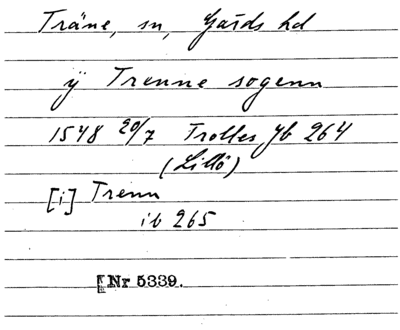 Träne, sn, Gärds hd
ÿ Trenne sogenn
1548 20/7 Trolles Jb 264
(Lillö)
[i] Trenn
ib 265
[Nr 5339.